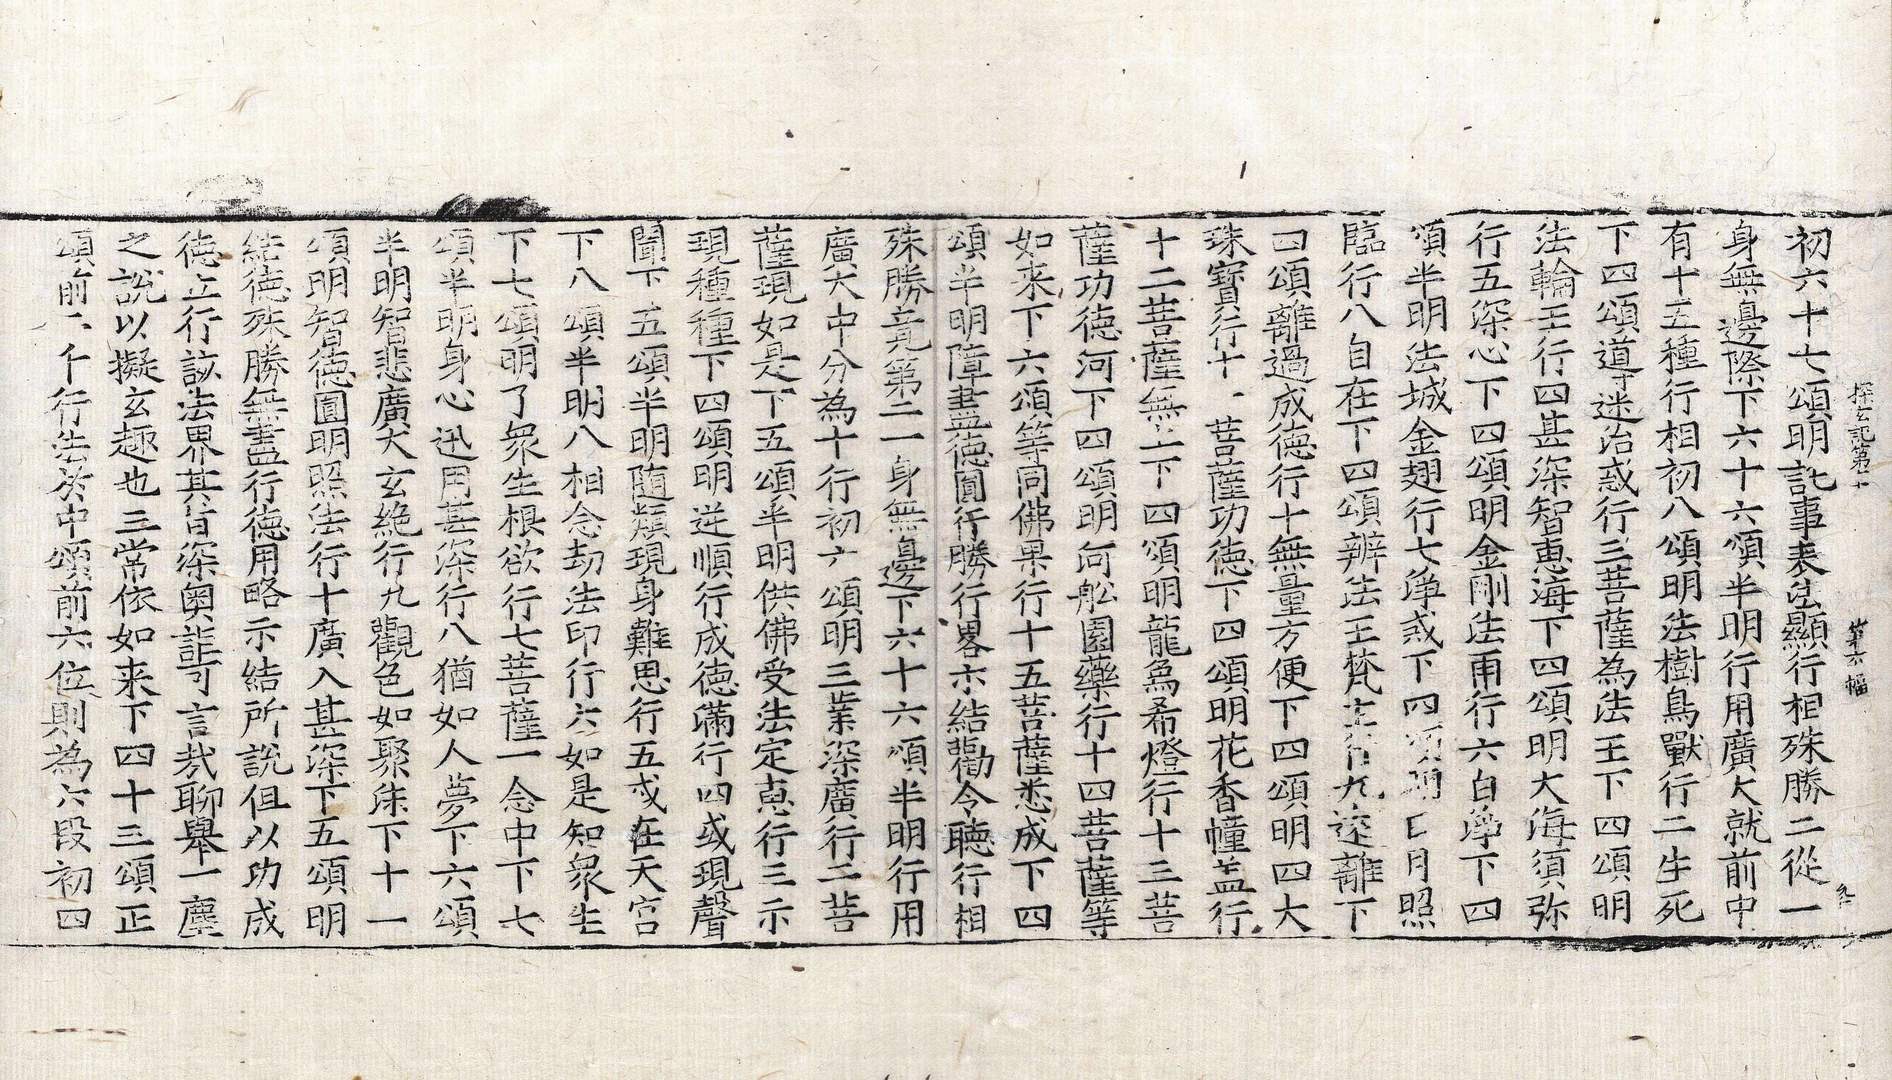 探玄記第十 第六幅
初六十七頌明託事表法顯行相殊勝二從一
身無邊際下六十六頌半明行用廣大就前中
有十五種行相初八頌明法樹鳥獸行二生死
下四頌導迷治惑行三菩薩為法王下四頌明
法輪王行四甚深智惠海下四頌明大海須弥
行五深心下四頌明金剛法雨行六白淨下四
頌半明法城金翅行七淨惑下四頌明日月照
臨行八自在下四頌辨法王梵王行九遠離下
四頌離過成德行十無量方便下四頌明四大
珠寶行十一菩薩功德下四頌明花香幢盖行
十二菩薩無上下四頌明龍為希燈行十三菩
薩功德河下四頌明河舩園藥行十四菩薩等
如来下六頌等同佛果行十五菩薩悉成下四
頌半明障盡德圓行勝行畧示結勸令聽行相
殊勝竟第二一身無邊下六十六頌半明行用
廣大中分為十行初六頌明三業深廣行二菩
薩現如是下五頌半明供佛受法定惠行三示
現種種下四頌明逆順行成德滿行四或現聲
聞下五頌半明随類現身難思行五或在天宮
下八頌半明八相念劫法印行六如是知衆生
下七頌明了衆生根欲行七菩薩一念中下七
頌半明身心迅用甚深行八猶如人夢下六頌
半明智悲廣大玄絶行九觀色如聚沫下十一
頌明智徳圓明照法行十廣入甚深下五頌明
結徳殊勝無盡行徳用略示結所說但以功成
徳立行該法界其旨深奥詎可言哉聊舉一塵
之說以擬玄趣也三常依如来下四十三頌正
頌前二千行法於中頌前六位則為六段初四